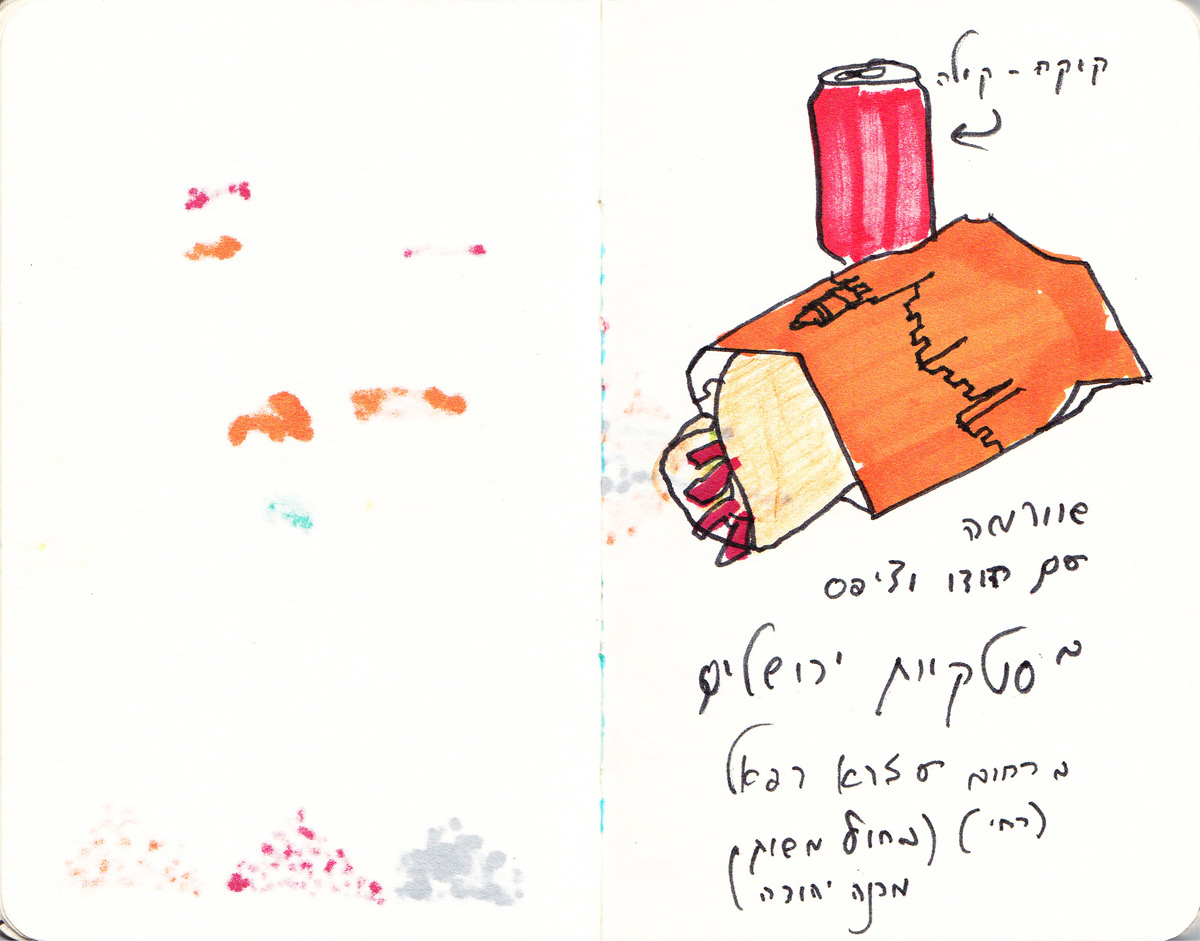 קוקה - קולה
שוורמה
עם הודו וצ'יפס
בסטקיית ירושלים
ברחוב עזרא רפאל
(רחי') (מחוץ
מחנה יהודה